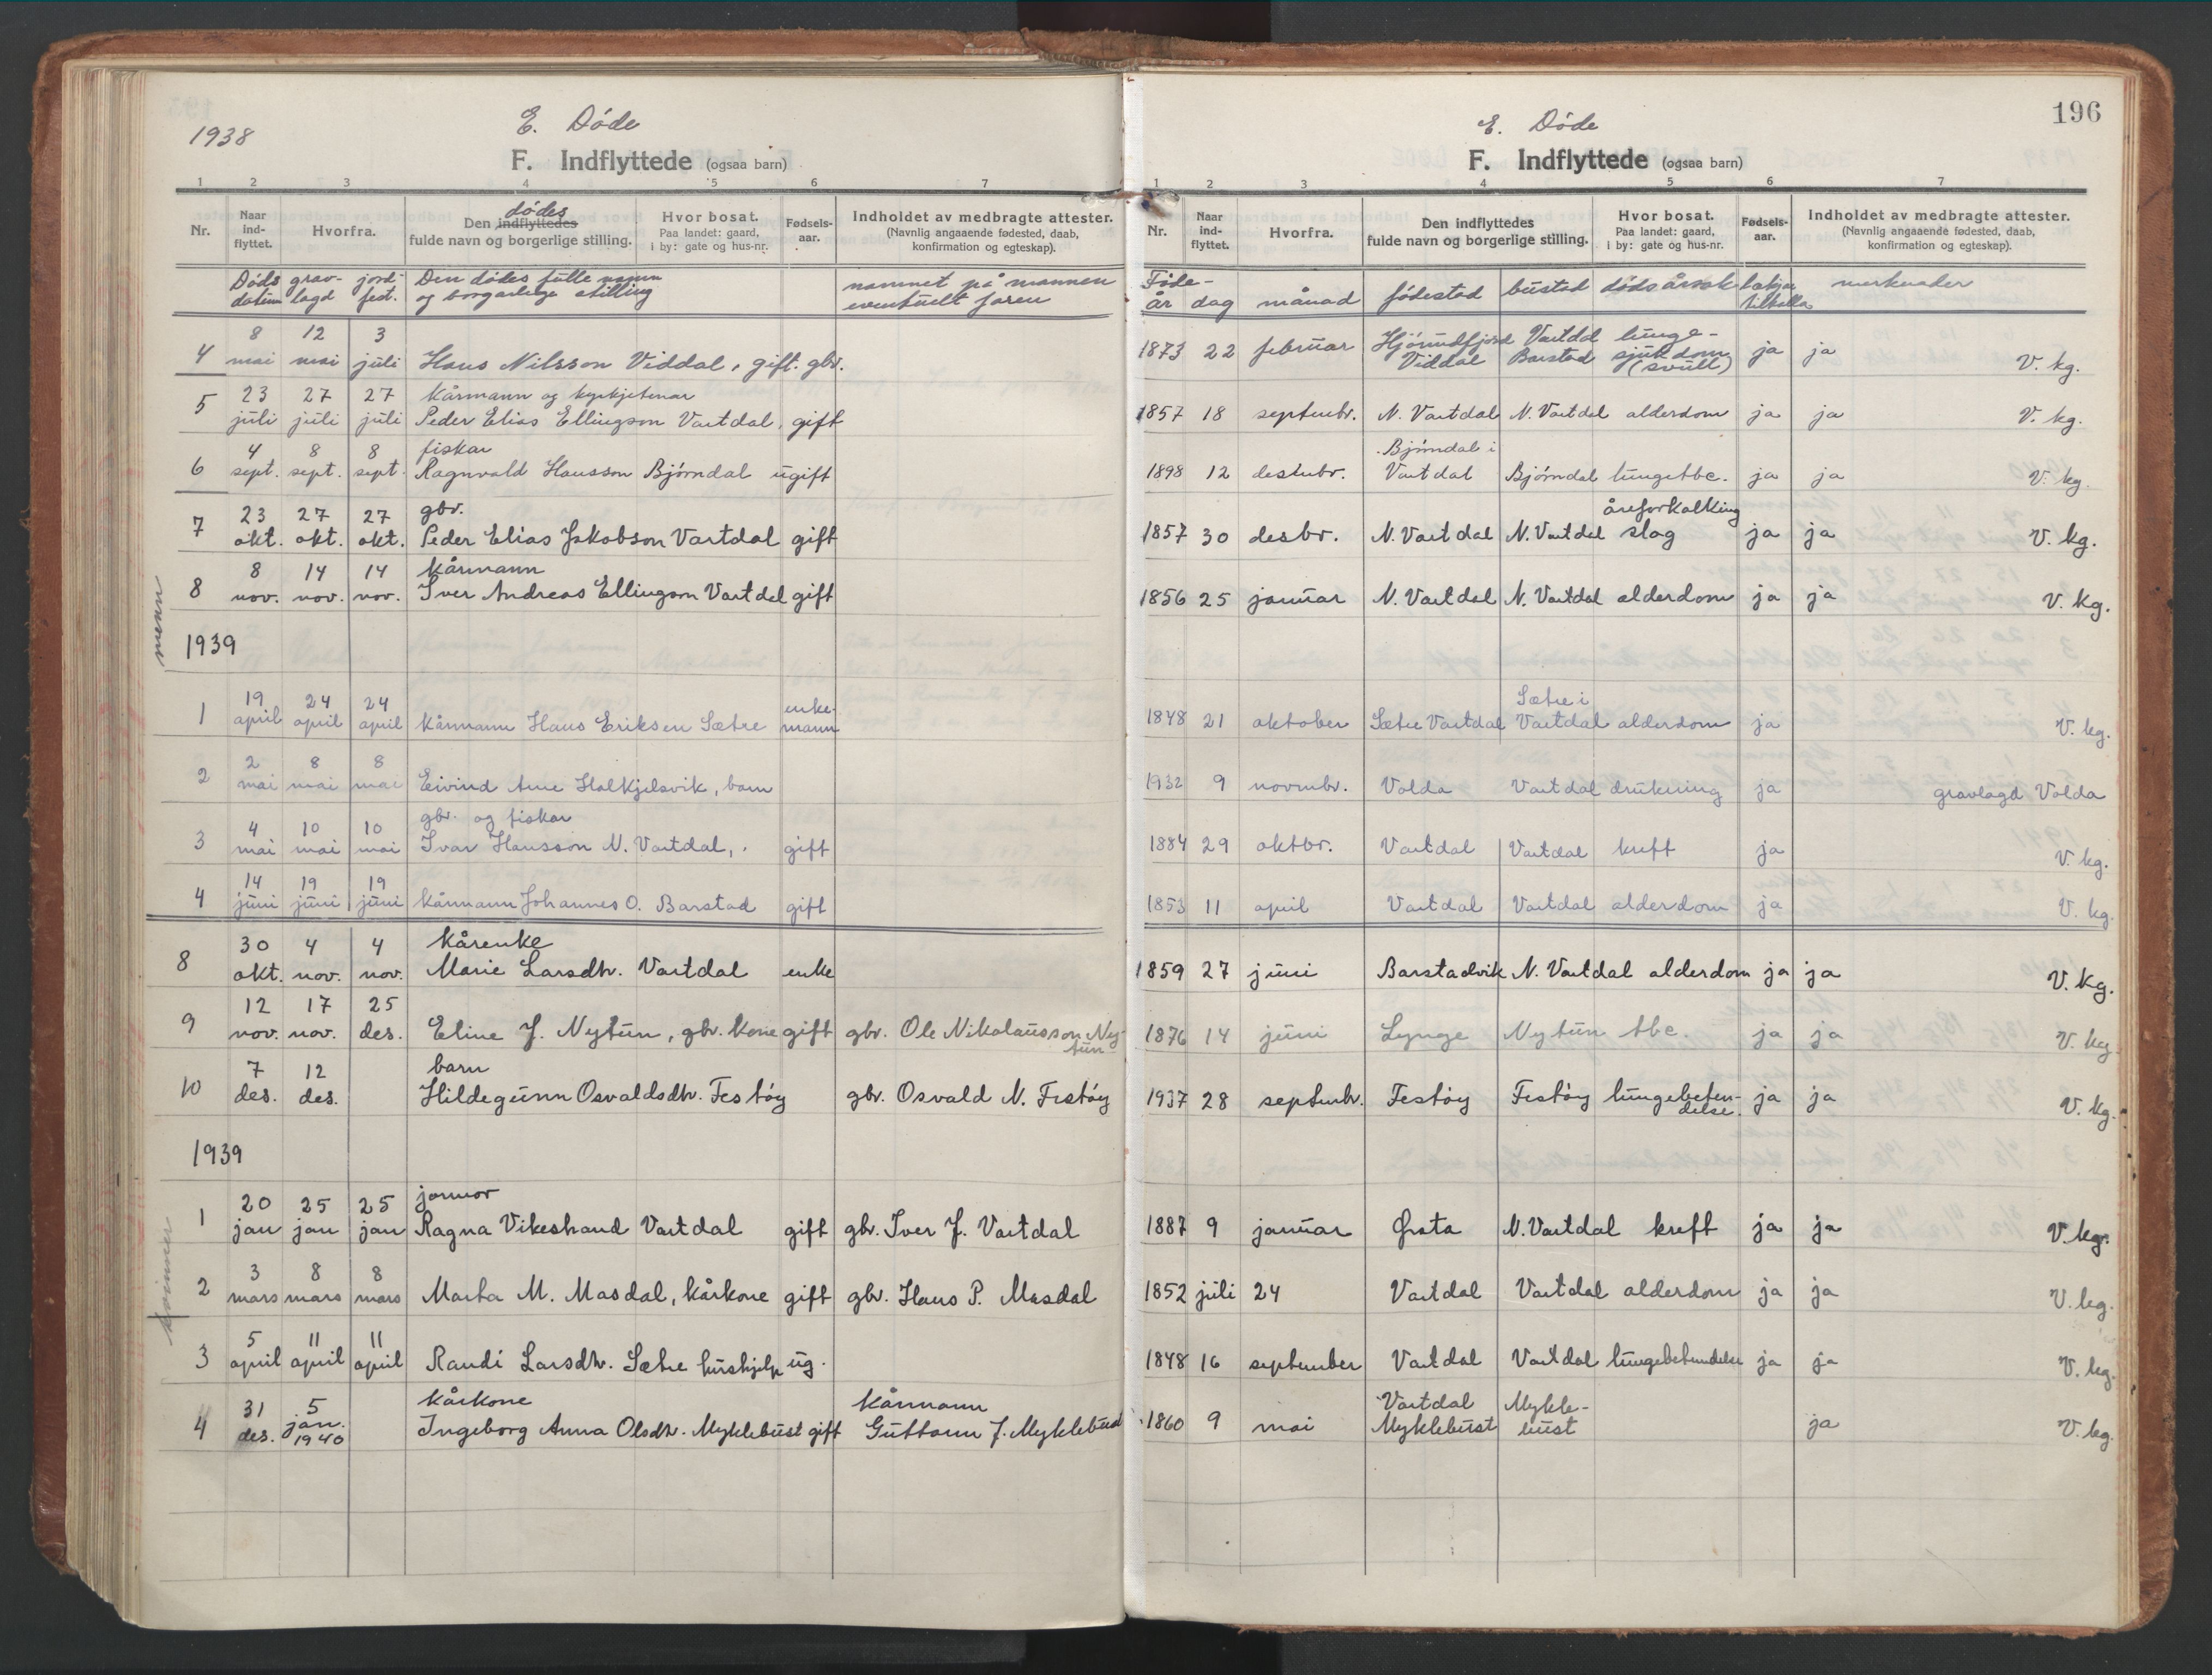 1938
E. Døde
F. Indflyttede (ogsaa barn)
1 2 3 4 5 6 7
Nr. Naar ind-flyttet. Hvorfra. Den indflyttedes dødes fulde navn og borgerlige stilling. Hvor bosat. Paa landet: gaard, i by: gate og hus-nr. Fødsels-aar. Indholdet av medbragte attester. (Navnlig angaaende fødested, daab, konfirmation og egteskap).
Døds datum grav-lagd jord-fest. Den dødes fulle namn og borgarlege stilling namnet på mannen eventuelt faren
4 8 mai 12 mai 3 juli Hans Nilsson Viddal, gift. gbr.
5 23 juli 27 juli 27 juli Kårmann og kyrkjetenar Peder Elias Ellingson Vartdal, gift
6 4 sept. 8 sept. 8 sept. fiskar Ragnvald Hansson Bjørndal ugift
7 23 okt. 27 okt. 27 okt. gbr. Peder Elias Jakobson Vartdal gift
8 8 nov. 14 nov. 14 nov. Kårmann Iver Andreas Ellingson Vartdal gift
menn
1939
1 19 april 24 april 24 april Kårmann Hans Eriksen Sætre enke-mann
2 2 mai 8 mai 8 mai Eivind Arne Halkjelsvik, barn
3 4 mai 10 mai 10 mai gbr. og fiskar Ivar Hansson N. Vartdal, gift
4 14 juni 19 juni 19 juni Kårmann Johannes O. Barstad gift
8 30 okt. 4 nov. 4 nov. Kårenke Marie Larsdtr. Vartdal enke
9 12 nov. 17 nov. 25 des. Eline J. Nytun, gbr. kone gift gbr. Ole Nikolausson Nytun
10 7 des. 12 des. barn Hildegunn Osvaldsdtr. Festøy gbr. Osvald N. Festøy
1939
1 20 jan 25 jan 25 jan jormor Ragna Vikestrand Vartdal gift gbr. Iver J. Vartdal
kvinner
2 3 mars 8 mars 8 mars Marta M. Masdal, kårkone gift gbr. Hans P. Masdal
3 5 april 11 april 11 april Randi Larsdtr. Sætre hushjelp ug.
4 31 des. 5 jan. 1940 Kårkone Ingeborg Anna Olsdtr. Myklebust gift Kårmann Guttorm J. Myklebust
196
E. Døde
F. Indflyttede (ogsaa barn)
1 2 3 4 5 6 7
Nr. Naar ind-flyttet. Hvorfra. Den indflyttedes fulde navn og borgerlige stilling. Hvor bosat. Paa landet: gaard, i by: gate og hus-nr. Fødsels-aar. Indholdet av medbragte attester. (Navnlig angaaende fødested, daab, konfirmation og egteskap).
Føde-år dag månad fødestad bustad dødsårsak merknader
1873 22 februar Hjørundfjord Viddal Vartdal Barstad lunge-sjukdom (svull) ja ja V. kg.
1857 18 septembr. N. Vartdal N. Vartdal alderdom ja ja V. kg.
1898 12 desembr. Bjørndal i Vartdal Bjørndal lungetbc. ja ja V. kg.
1857 30 desbr. N. Vartdal N. Vartdal åreforkalking slag ja ja V. kg.
1856 25 januar N. Vartdal N. Vartdal alderdom ja ja V. kg.
1848 21 oktober Sætre Vartdal Sætre i Vartdal alderdom ja V. kg.
1932 9 novmbr. Volda Vartdal drukning ja gravlagd Volda
1884 29 oktbr. Vartdal Vartdal kreft ja V. kg.
1853 11 april Vartdal Vartdal alderdom ja V. kg.
1859 27 juni Barstadvik N. Vartdal alderdom ja ja V. kg.
1876 14 juni Lynge Nytun tbc. ja ja V. kg.
1937 28 septembr. Festøy Festøy lungebeten-delse. ja ja V. kg.
1887 9 januar Ørsta N. Vartdal kreft ja ja V. kg.
1852 juli 24 Vartdal Vartdal alderdom ja ja V. kg.
1848 16 september Vartdal Vartdal lungebetendelse ja ja V. kg.
1860 9 mai Vartdal Myklebust Mykle-bust ja V. kg.